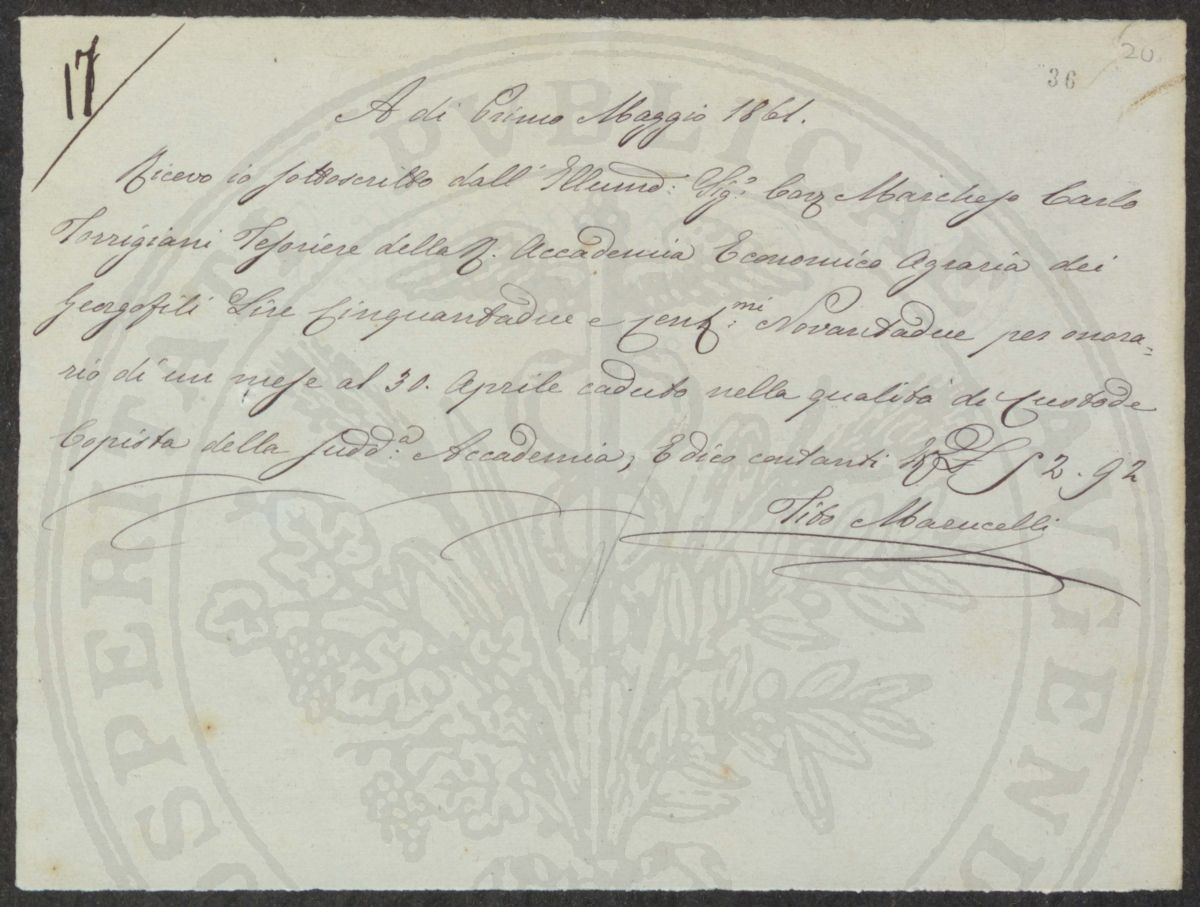 17
20
36
A di Primo Maggio 1861.
Ricevo io sottoscritto dall' Illumo: Sig.e Marchese Carlo
Torrigiani Tesoriere della R. Accademia Economico Agraria dei
Georgofili Lire Cinquantadue e Cent.mi Novantadue per onora=
rio di un mese al 30. Aprile caduto nella qualità di Custode
Copista della Sudd.a Accademia, E dico contanti 52.92
Tito Marucelli
PROSPERITATI PVBLICAE AVGENDAE